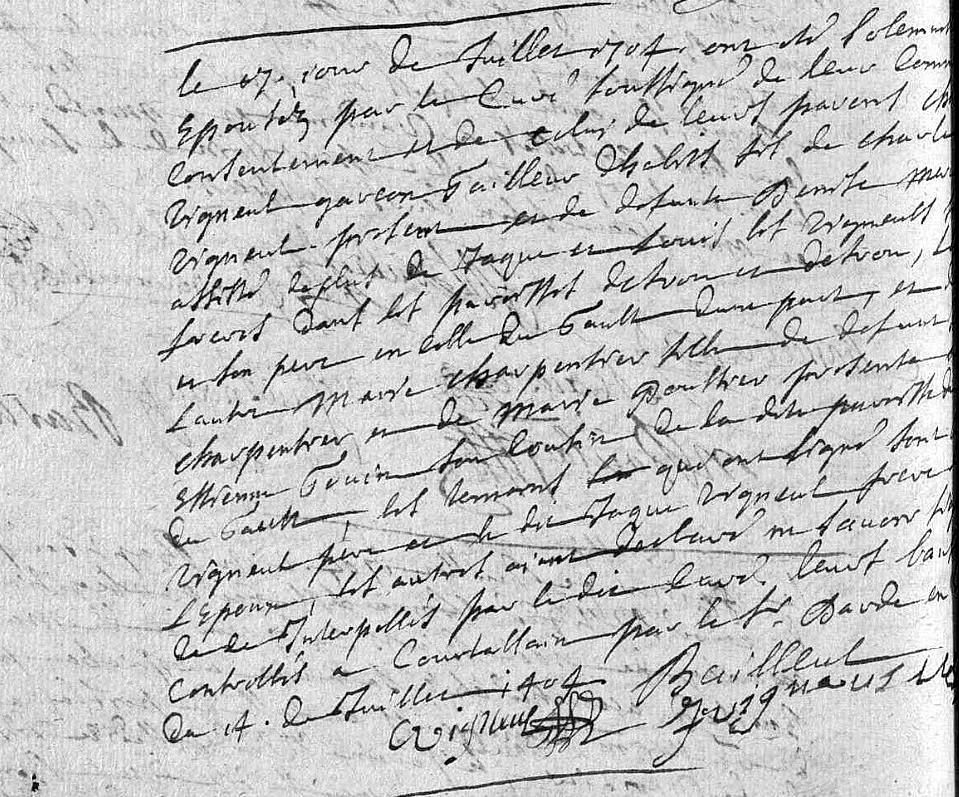 le 17. jour de Juillet 1704. ont eté solemnel
Epousez par le Curé soussigné de leur Comm
Consentement et de celui de leurs parens Cha
Vigneul garcon Tailleur Dhabits fils de charle
Vigneul present et de defunte Denise Mer
assisté de plus de Jaque et Louis les Vigneuls
freres dans les paroisses
et son pere en celle du Gault dune part, et d
Lautre Marie charpentier fille de defunt
charpentier et de Marie Poultier presente
Estienne Gouin son Cousin de la dite paroisse
du Gault, les temoins qui ont signé sont
Vigneul pere et le dit Jaque Vigneul frere
LEpoux, les autres aiant declaré ne scavoir
de ce Interpellés par le dit Curé. leurs ban
Controllés a Courtallain par le Sr. Darde en
du 14. de Juillet 1704 Bailleul
CVigneul JVigneul